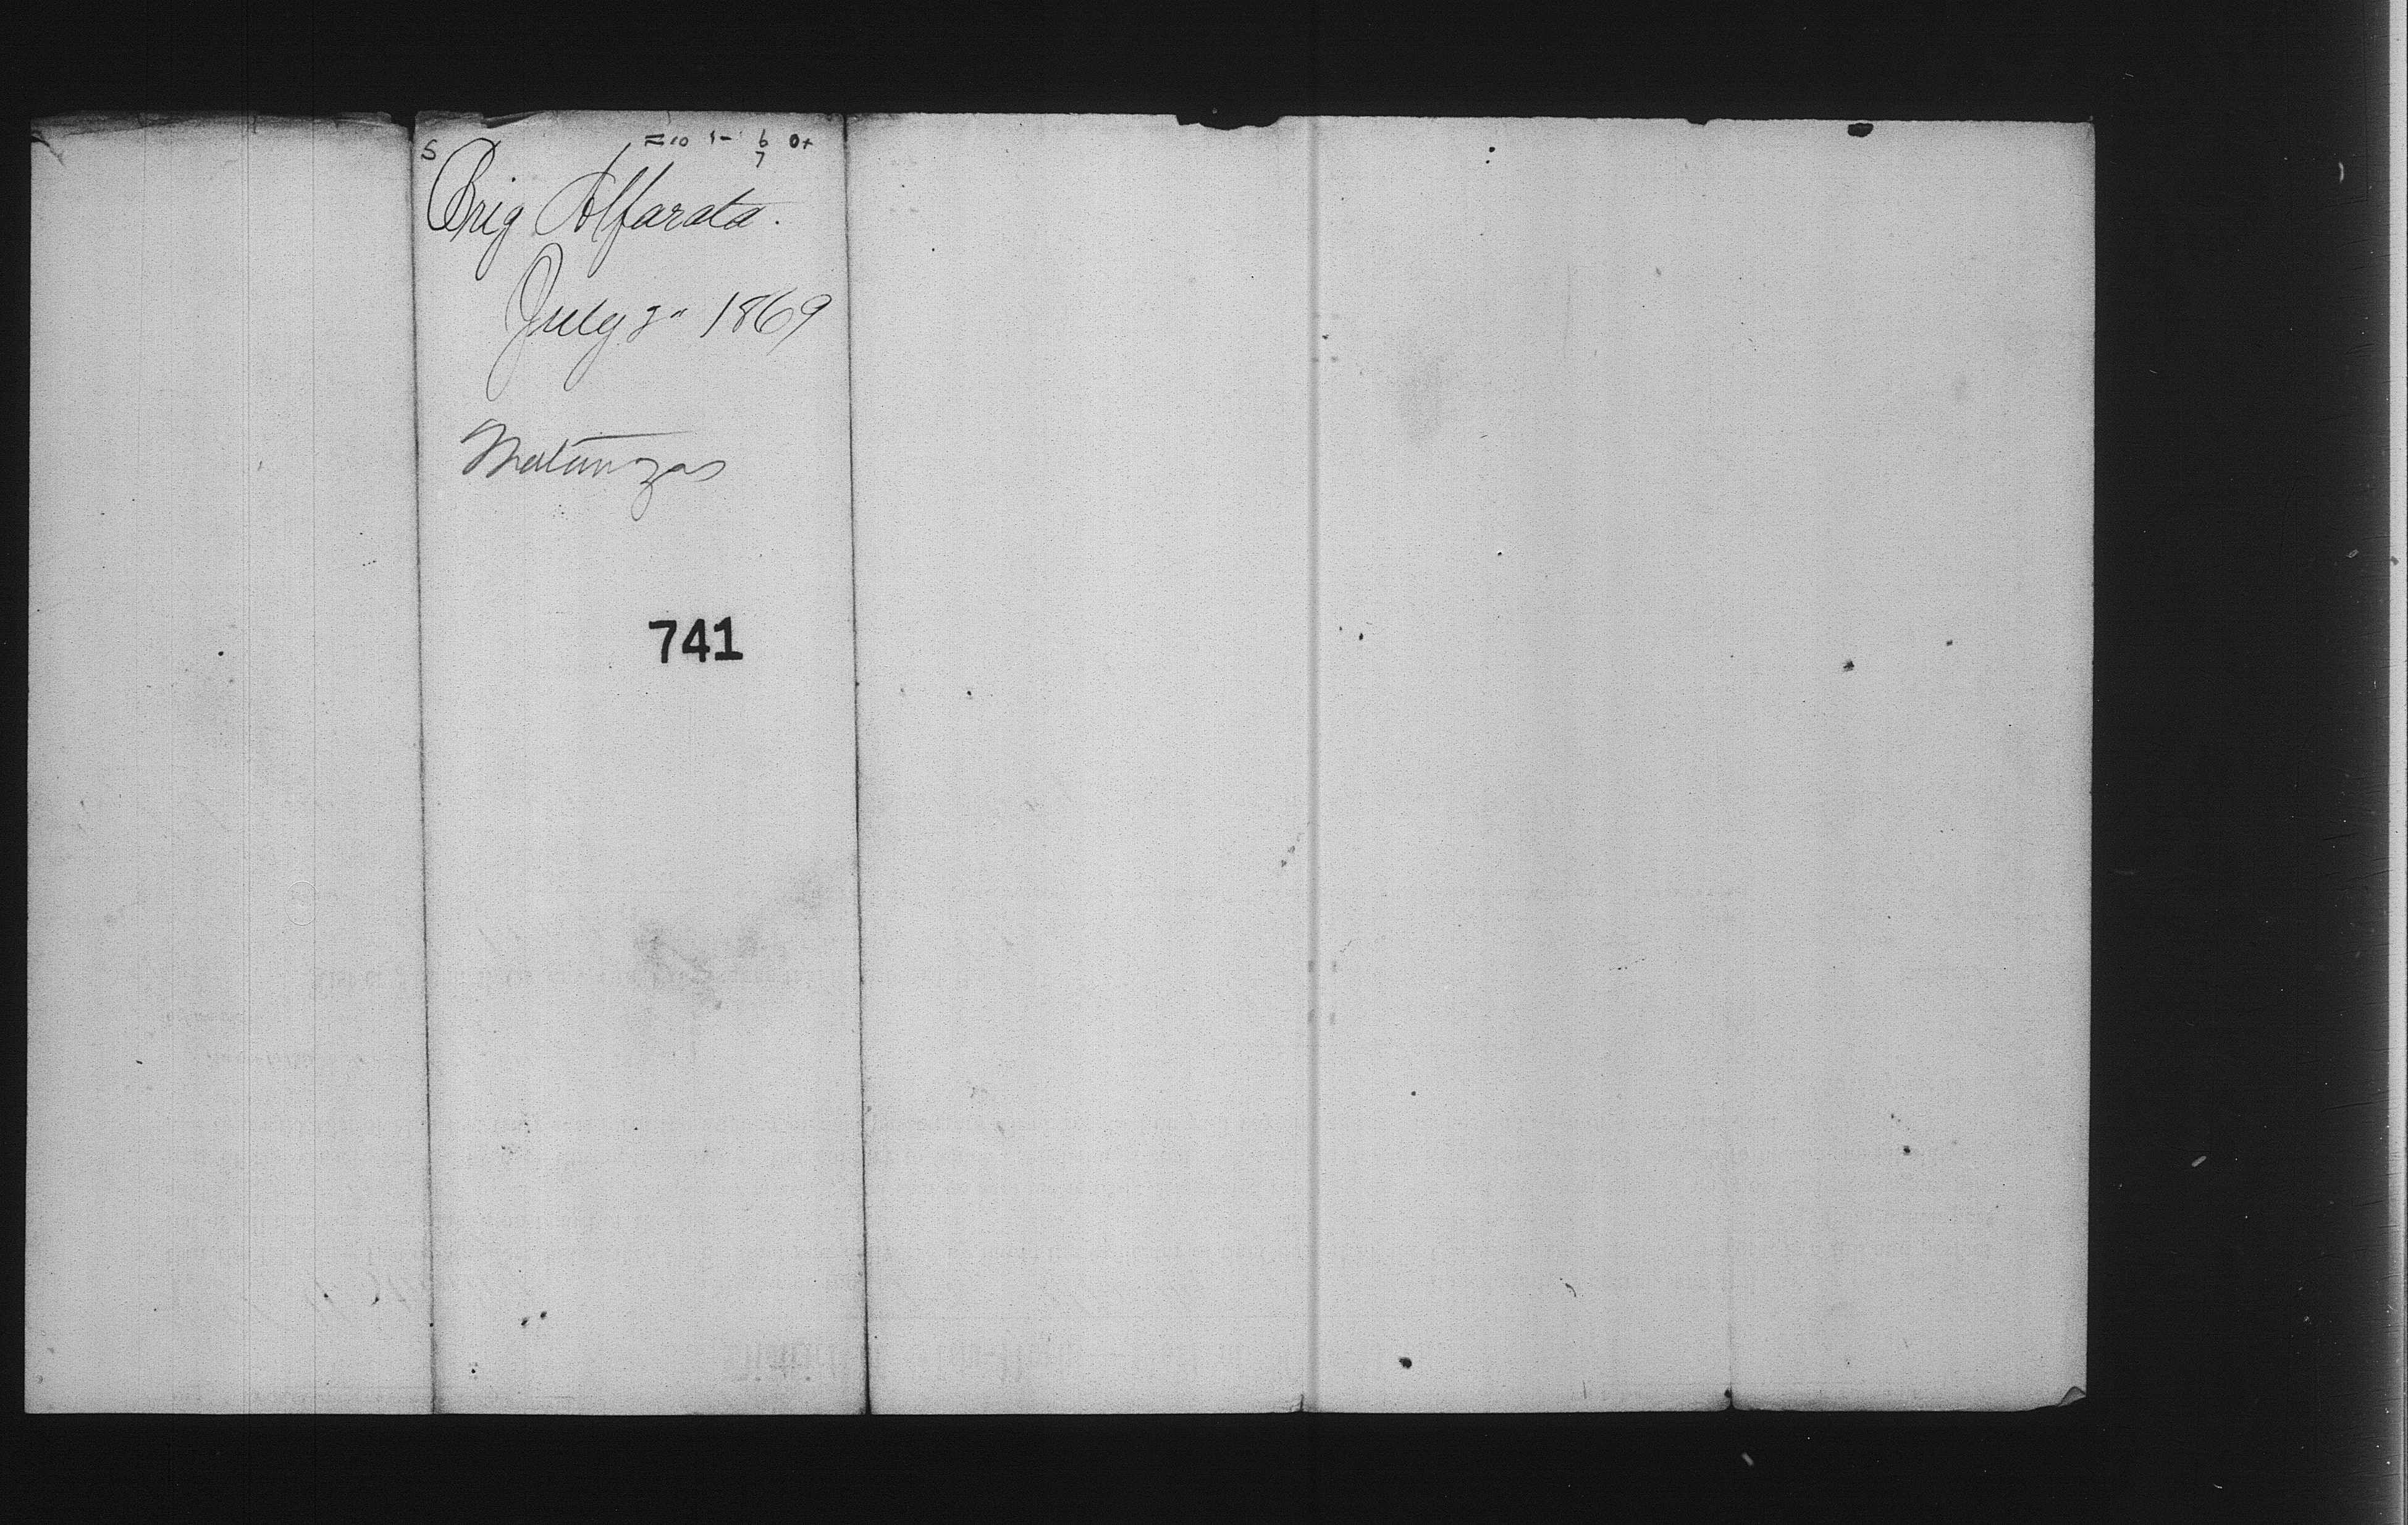 S =10 1- 6 0+
7
Brig Alfarata.
July 3" 1869
Matanzas
741